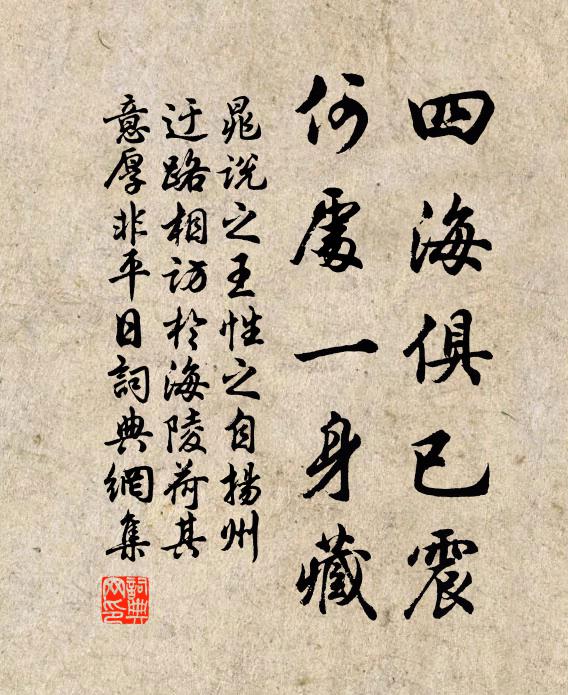 四海俱已震
何處一身藏
晁說之王性之自揚州
迂路相訪於海陵荷其
意厚非平日詞典網集
詞典
网印